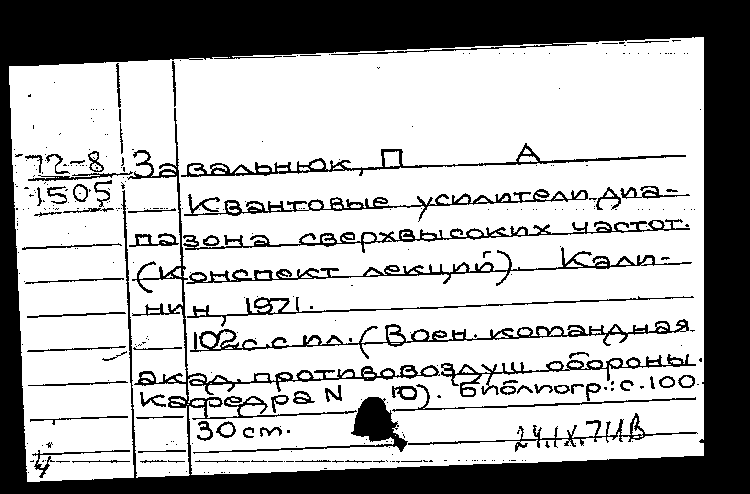 72-8 Завальнюк, П А
1505
Квантовые усилители диа-
пазона сверхвысоких частот.
(Конспект лекций). Кали-
нин, 1971.
102с. с ил. (Воен. командная
акад. противовоздуш обороны.
Кафедра N 10). Библиогр.: с. 100
30 см.
24.IX.71
4